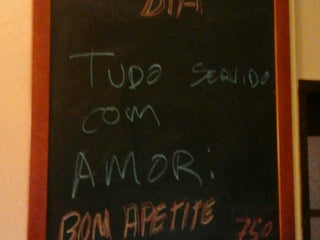 DIA
TUDO SERVIDO
COM
AMOR:
BOM APETITE
750